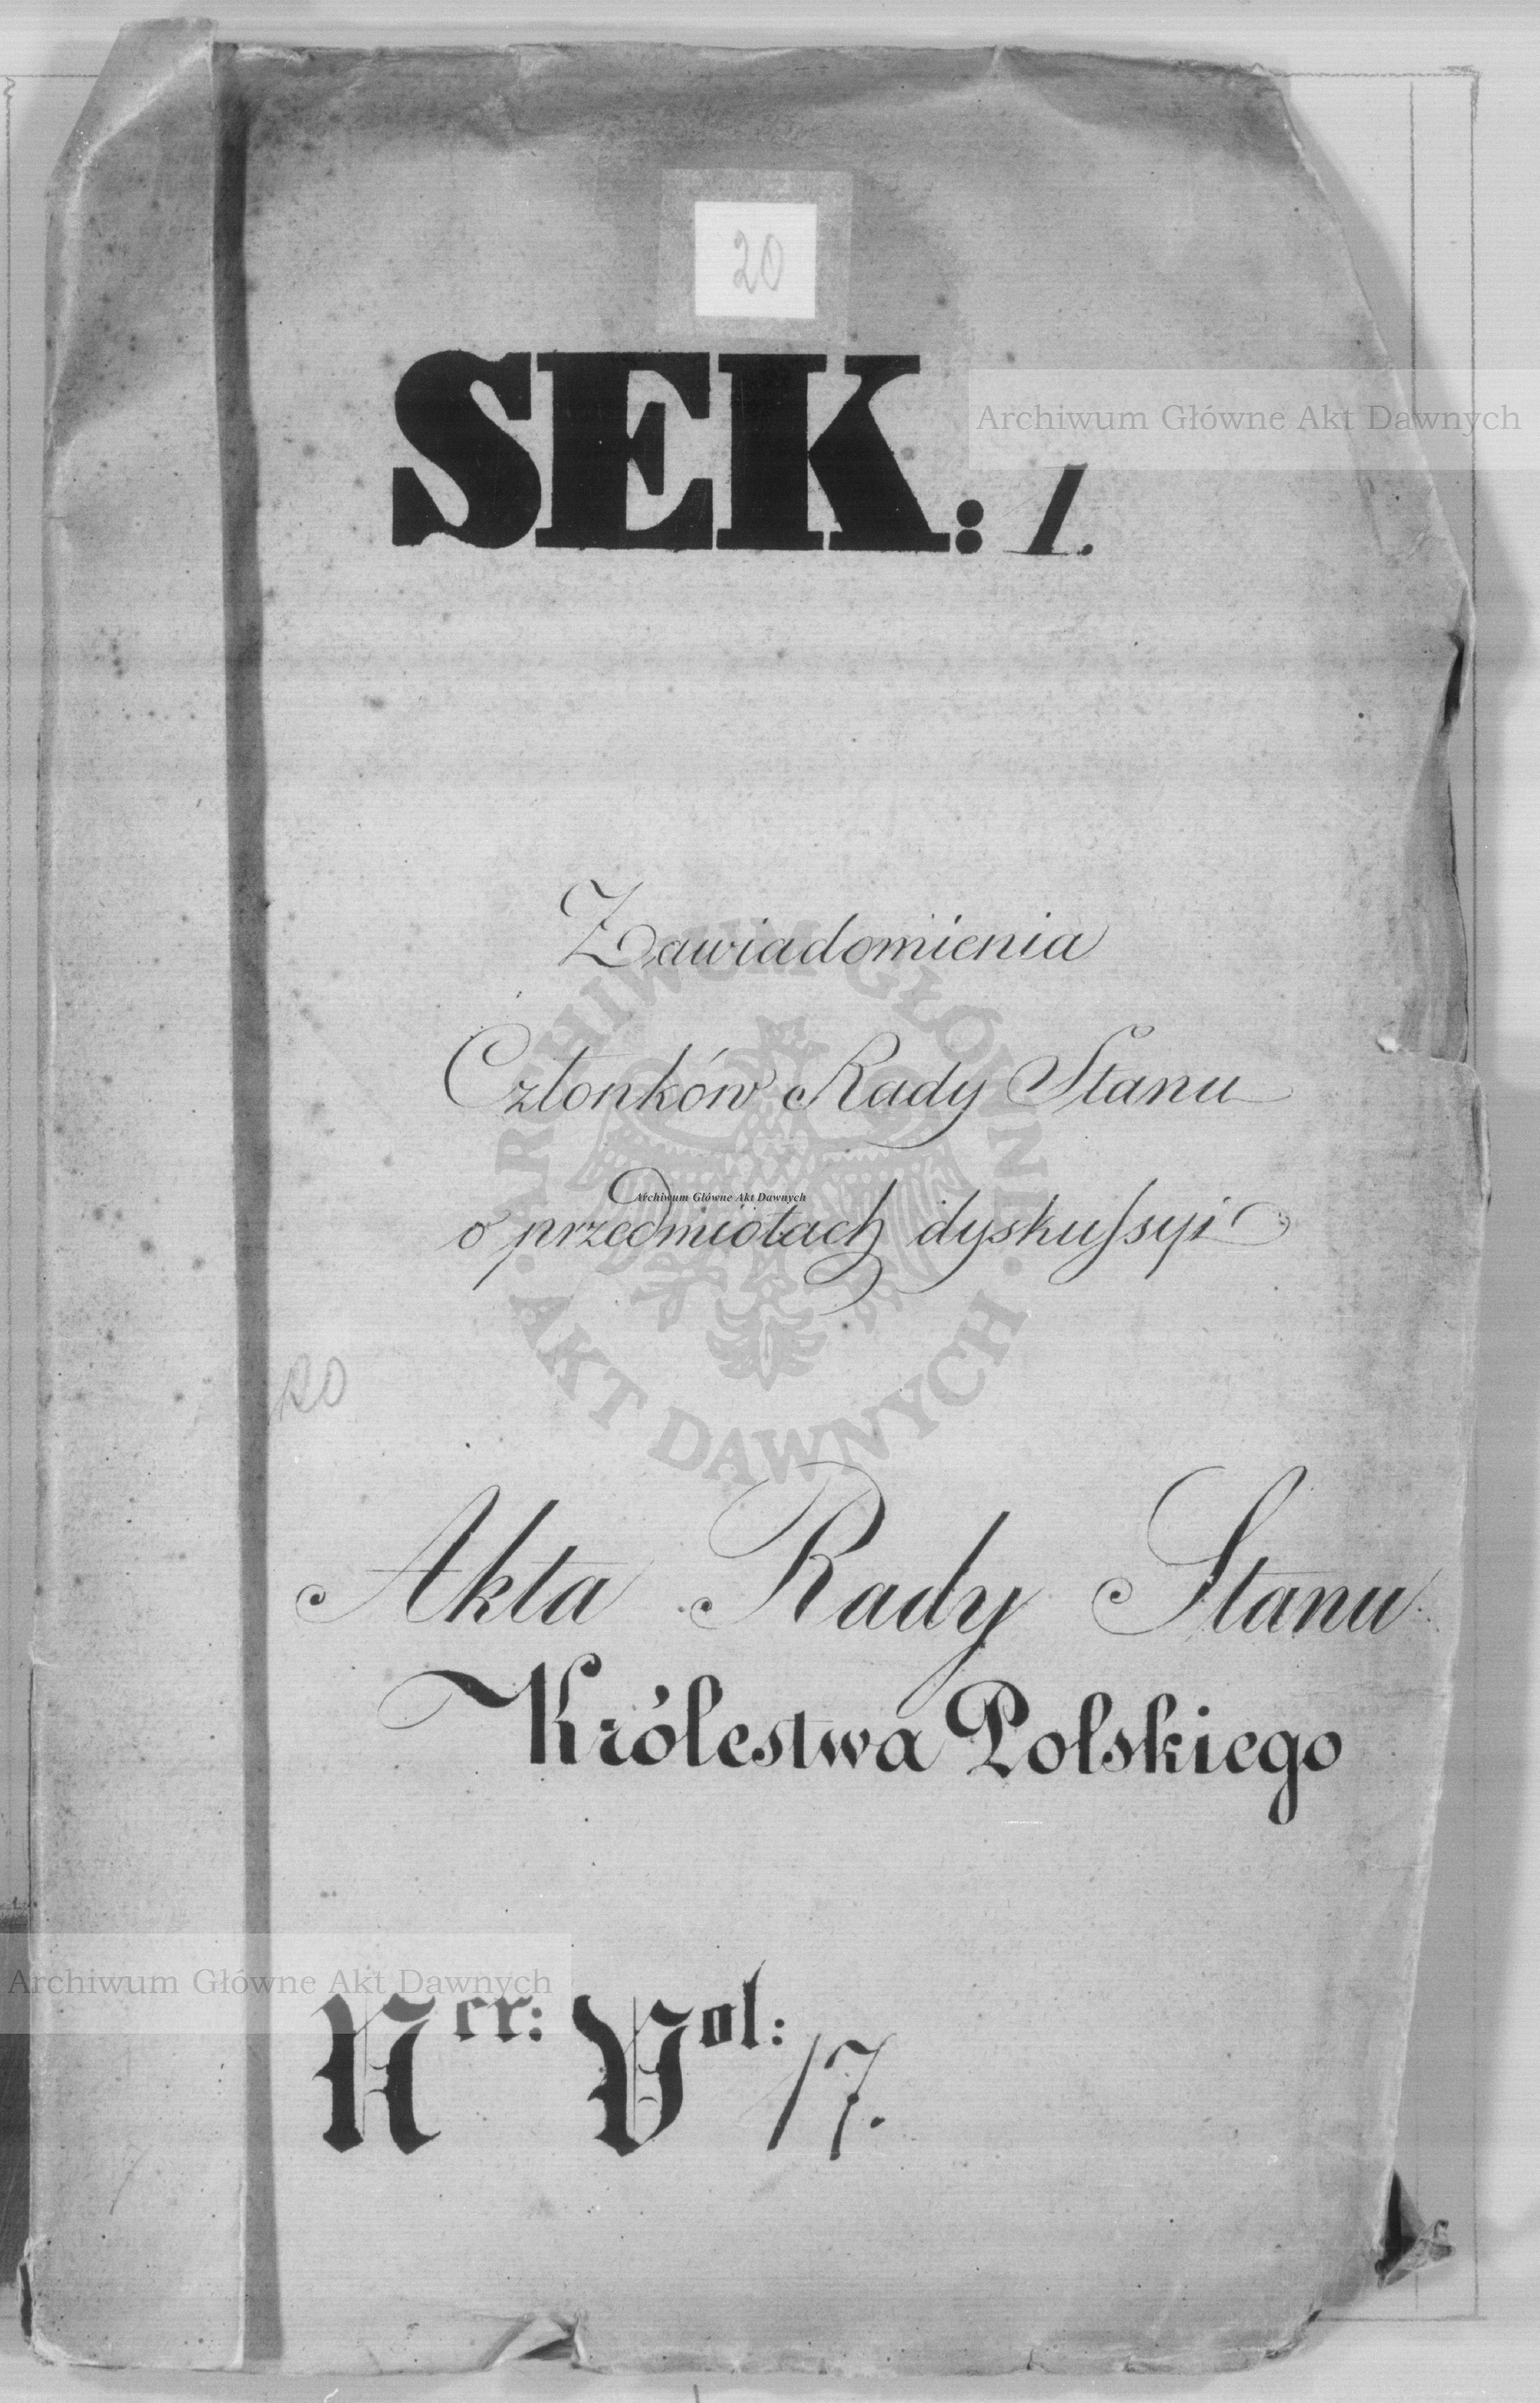 20
SEK: 1.
Archiwum Główne Akt Dawnych
Zawiadomienia
Członków Rady Stanu
o przedmiotach dyskussyi
Archiwum Główne Akt Dawnych
ARCHIWUM GŁÓWNE
AKT DAWNYCH
20
Akta Rady Stanu
Królestwa Polskiego
Archiwum Główne Akt Dawnych
Ner: Vol: 17.